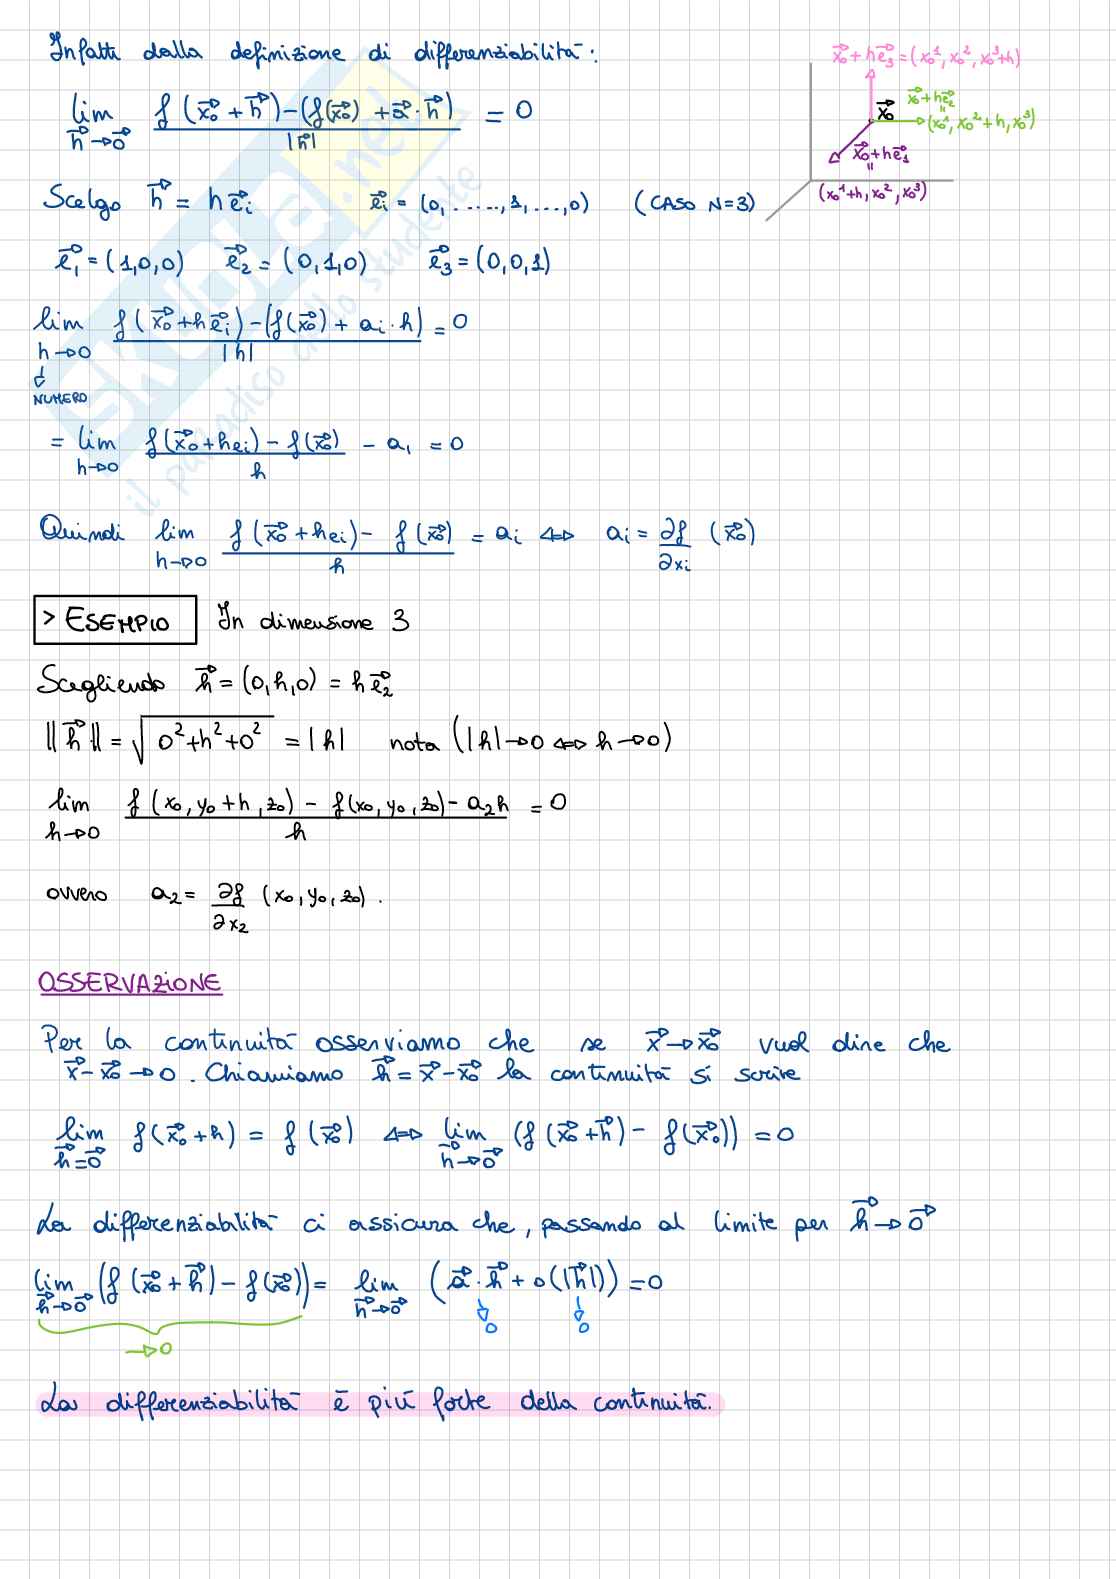 Infatti dalla definizione di differenziabilità:
lim_{h⃗→0⃗} f(x⃗₀ + h⃗) − (f(x⃗₀) + a⃗ · h⃗) / |h⃗| = 0
Scelgo h⃗ = h e⃗ᵢ    e⃗ᵢ = (0, ....., 1, ..., 0)    (CASO N=3)
x⃗₀ + h e⃗₃ = (x₀¹, x₀², x₀³+h)
x⃗₀
x⃗₀ + h e⃗₂
=
(x₀¹, x₀² + h, x₀³)
x⃗₀ + h e⃗₁
=
(x₀¹+h, x₀², x₀³)
e⃗₁ = (1,0,0)    e⃗₂ = (0,1,0)    e⃗₃ = (0,0,1)
lim_{h→0} f(x⃗₀ + h e⃗ᵢ) − (f(x⃗₀) + aᵢ · h) / |h| = 0
↓
NUMERO
= lim_{h→0} f(x⃗₀ + heᵢ) − f(x⃗₀) / h − a₁ = 0
Quindi lim_{h→0} f(x⃗₀ + heᵢ) − f(x⃗₀) / h = aᵢ ⇔ aᵢ = ∂f/∂xᵢ (x⃗₀)
> ESEMPIO    In dimensione 3
Scegliendo h⃗ = (0, h, 0) = h e⃗₂
||h⃗|| = √(0² + h² + 0²) = |h|    nota (|h| → 0 ⇔ h → 0)
lim_{h→0} f(x₀, y₀ + h, z₀) − f(x₀, y₀, z₀) − a₂h / h = 0
ovvero a₂ = ∂f/∂x₂ (x₀, y₀, z₀).
OSSERVAZIONE
Per la continuità osserviamo che se x⃗ → x⃗₀ vuol dire che
x⃗ − x⃗₀ → 0. Chiamiamo h⃗ = x⃗ − x⃗₀ la continuità si scrive
lim_{h⃗=0⃗} f(x⃗₀ + h) = f(x⃗₀) ⇔ lim_{h⃗→0⃗} (f(x⃗₀ + h⃗) − f(x⃗₀)) = 0
La differenziabilità ci assicura che, passando al limite per h⃗ → 0⃗
lim_{h⃗→0⃗} (f(x⃗₀ + h⃗) − f(x⃗₀)) = lim_{h⃗→0⃗} (a⃗ · h⃗ + o(|h⃗|)) = 0
↓ 0    ↓ 0
→ 0
La differenziabilità è più forte della continuità.
SKUOLA.net
il paradiso dello studente